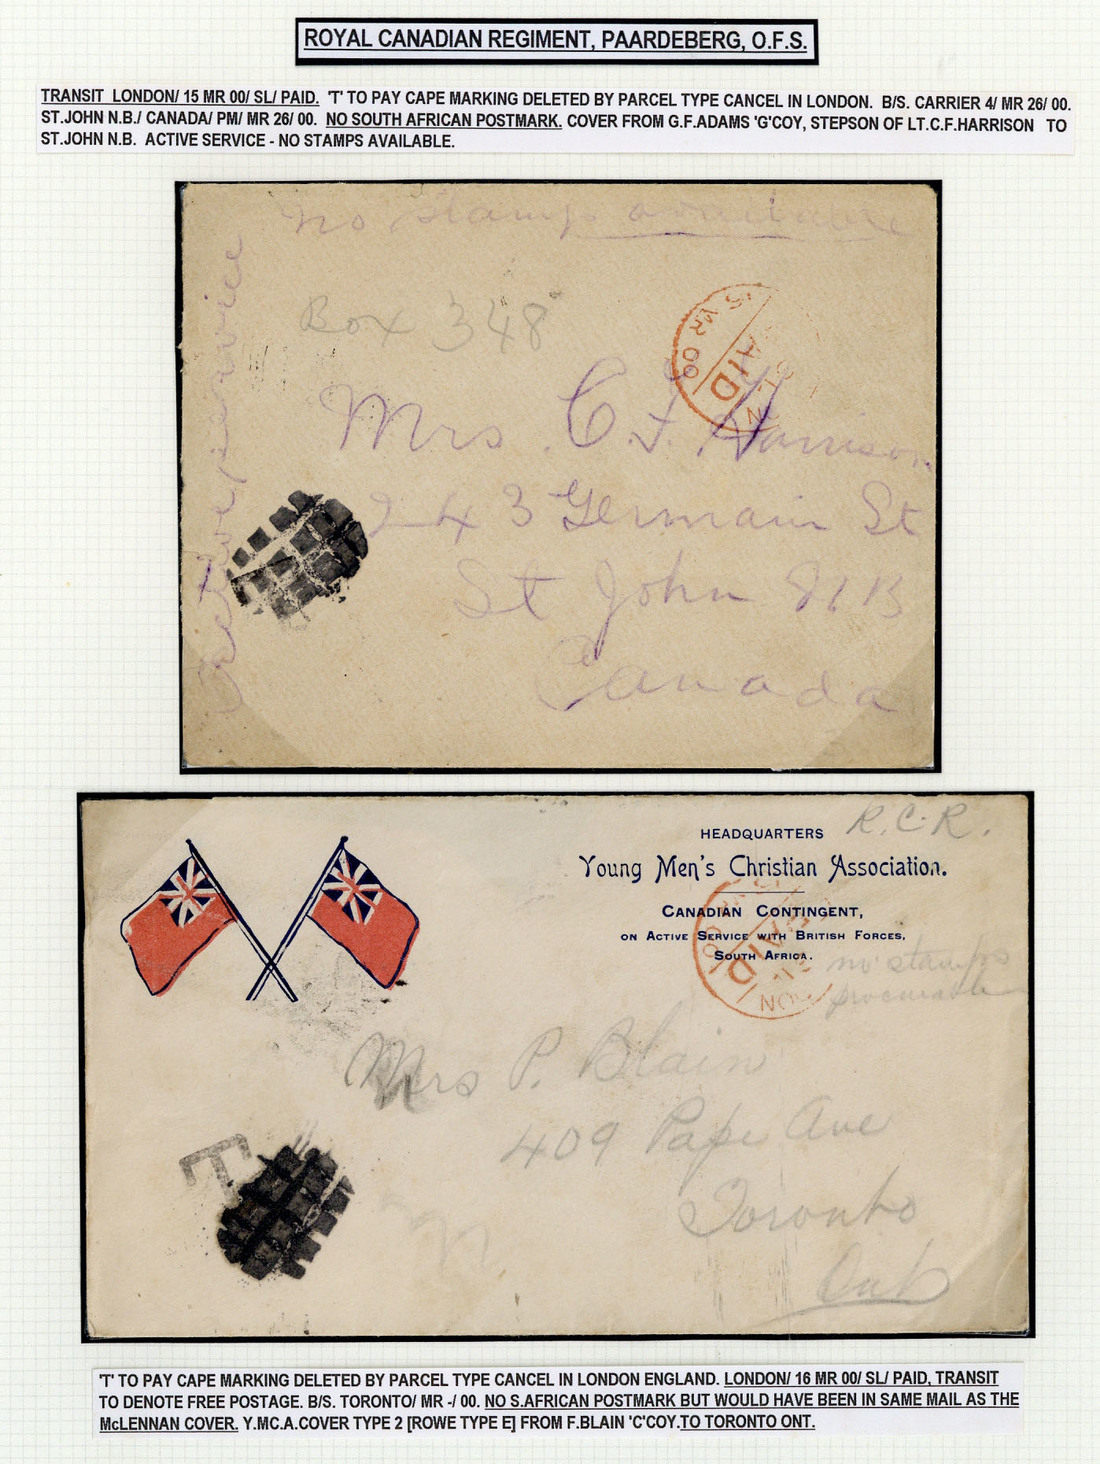 ROYAL CANADIAN REGIMENT, PAARDEBERG, O.F.S.
TRANSIT LONDON/ 15 MR 00/ SL/ PAID. 'T' TO PAY CAPE MARKING DELETED BY PARCEL TYPE CANCEL IN LONDON. B/S. CARRIER 4/ MR 26/ 00.
ST.JOHN N.B./ CANADA/ PM/ MR 26/ 00. NO SOUTH AFRICAN POSTMARK. COVER FROM G.F.ADAMS 'G'COY, STEPSON OF LT.C.F.HARRISON TO
ST.JOHN N.B. ACTIVE SERVICE - NO STAMPS AVAILABLE.
No stamps available
Active service
Box 348
MR 00
AID
Mrs. C. F. Harrison
243 Germain St
St John N B
Canada
HEADQUARTERS R.C.R.
Young Men's Christian Association.
CANADIAN CONTINGENT,
ON ACTIVE SERVICE WITH BRITISH FORCES,
SOUTH AFRICA.
AID
no stamps
procurable
Mrs P. Blain
409 Pape Ave
Toronto
Ont
T
'T' TO PAY CAPE MARKING DELETED BY PARCEL TYPE CANCEL IN LONDON ENGLAND. LONDON/ 16 MR 00/ SL/ PAID, TRANSIT
TO DENOTE FREE POSTAGE. B/S. TORONTO/ MR -/ 00. NO S.AFRICAN POSTMARK BUT WOULD HAVE BEEN IN SAME MAIL AS THE
McLENNAN COVER. Y.MC.A.COVER TYPE 2 [ROWE TYPE E] FROM F.BLAIN 'C'COY.TO TORONTO ONT.